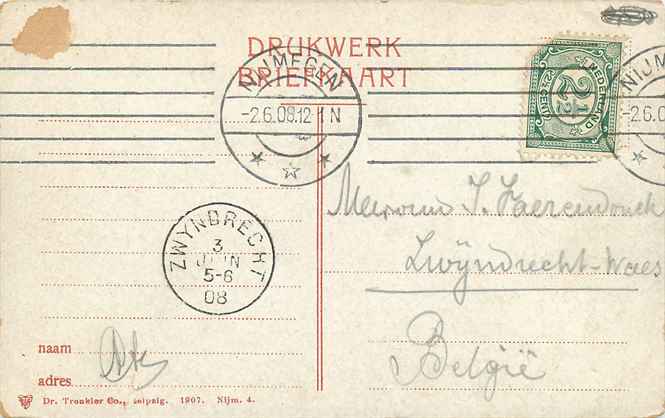 DRUKWERK
BRIEFKAART
NIJMEGEN
-2.6.08.12-1N
NEDERLAND
2½
CENT
NIJM
-2.6.0
ZWYNDRECHT
3
JUIN
5-6
08
Mevrouw J.
Zwijndrecht-Waes
België
naam
adres
Dr. Trenkler Co., Leipzig. 1907. Nijm. 4.